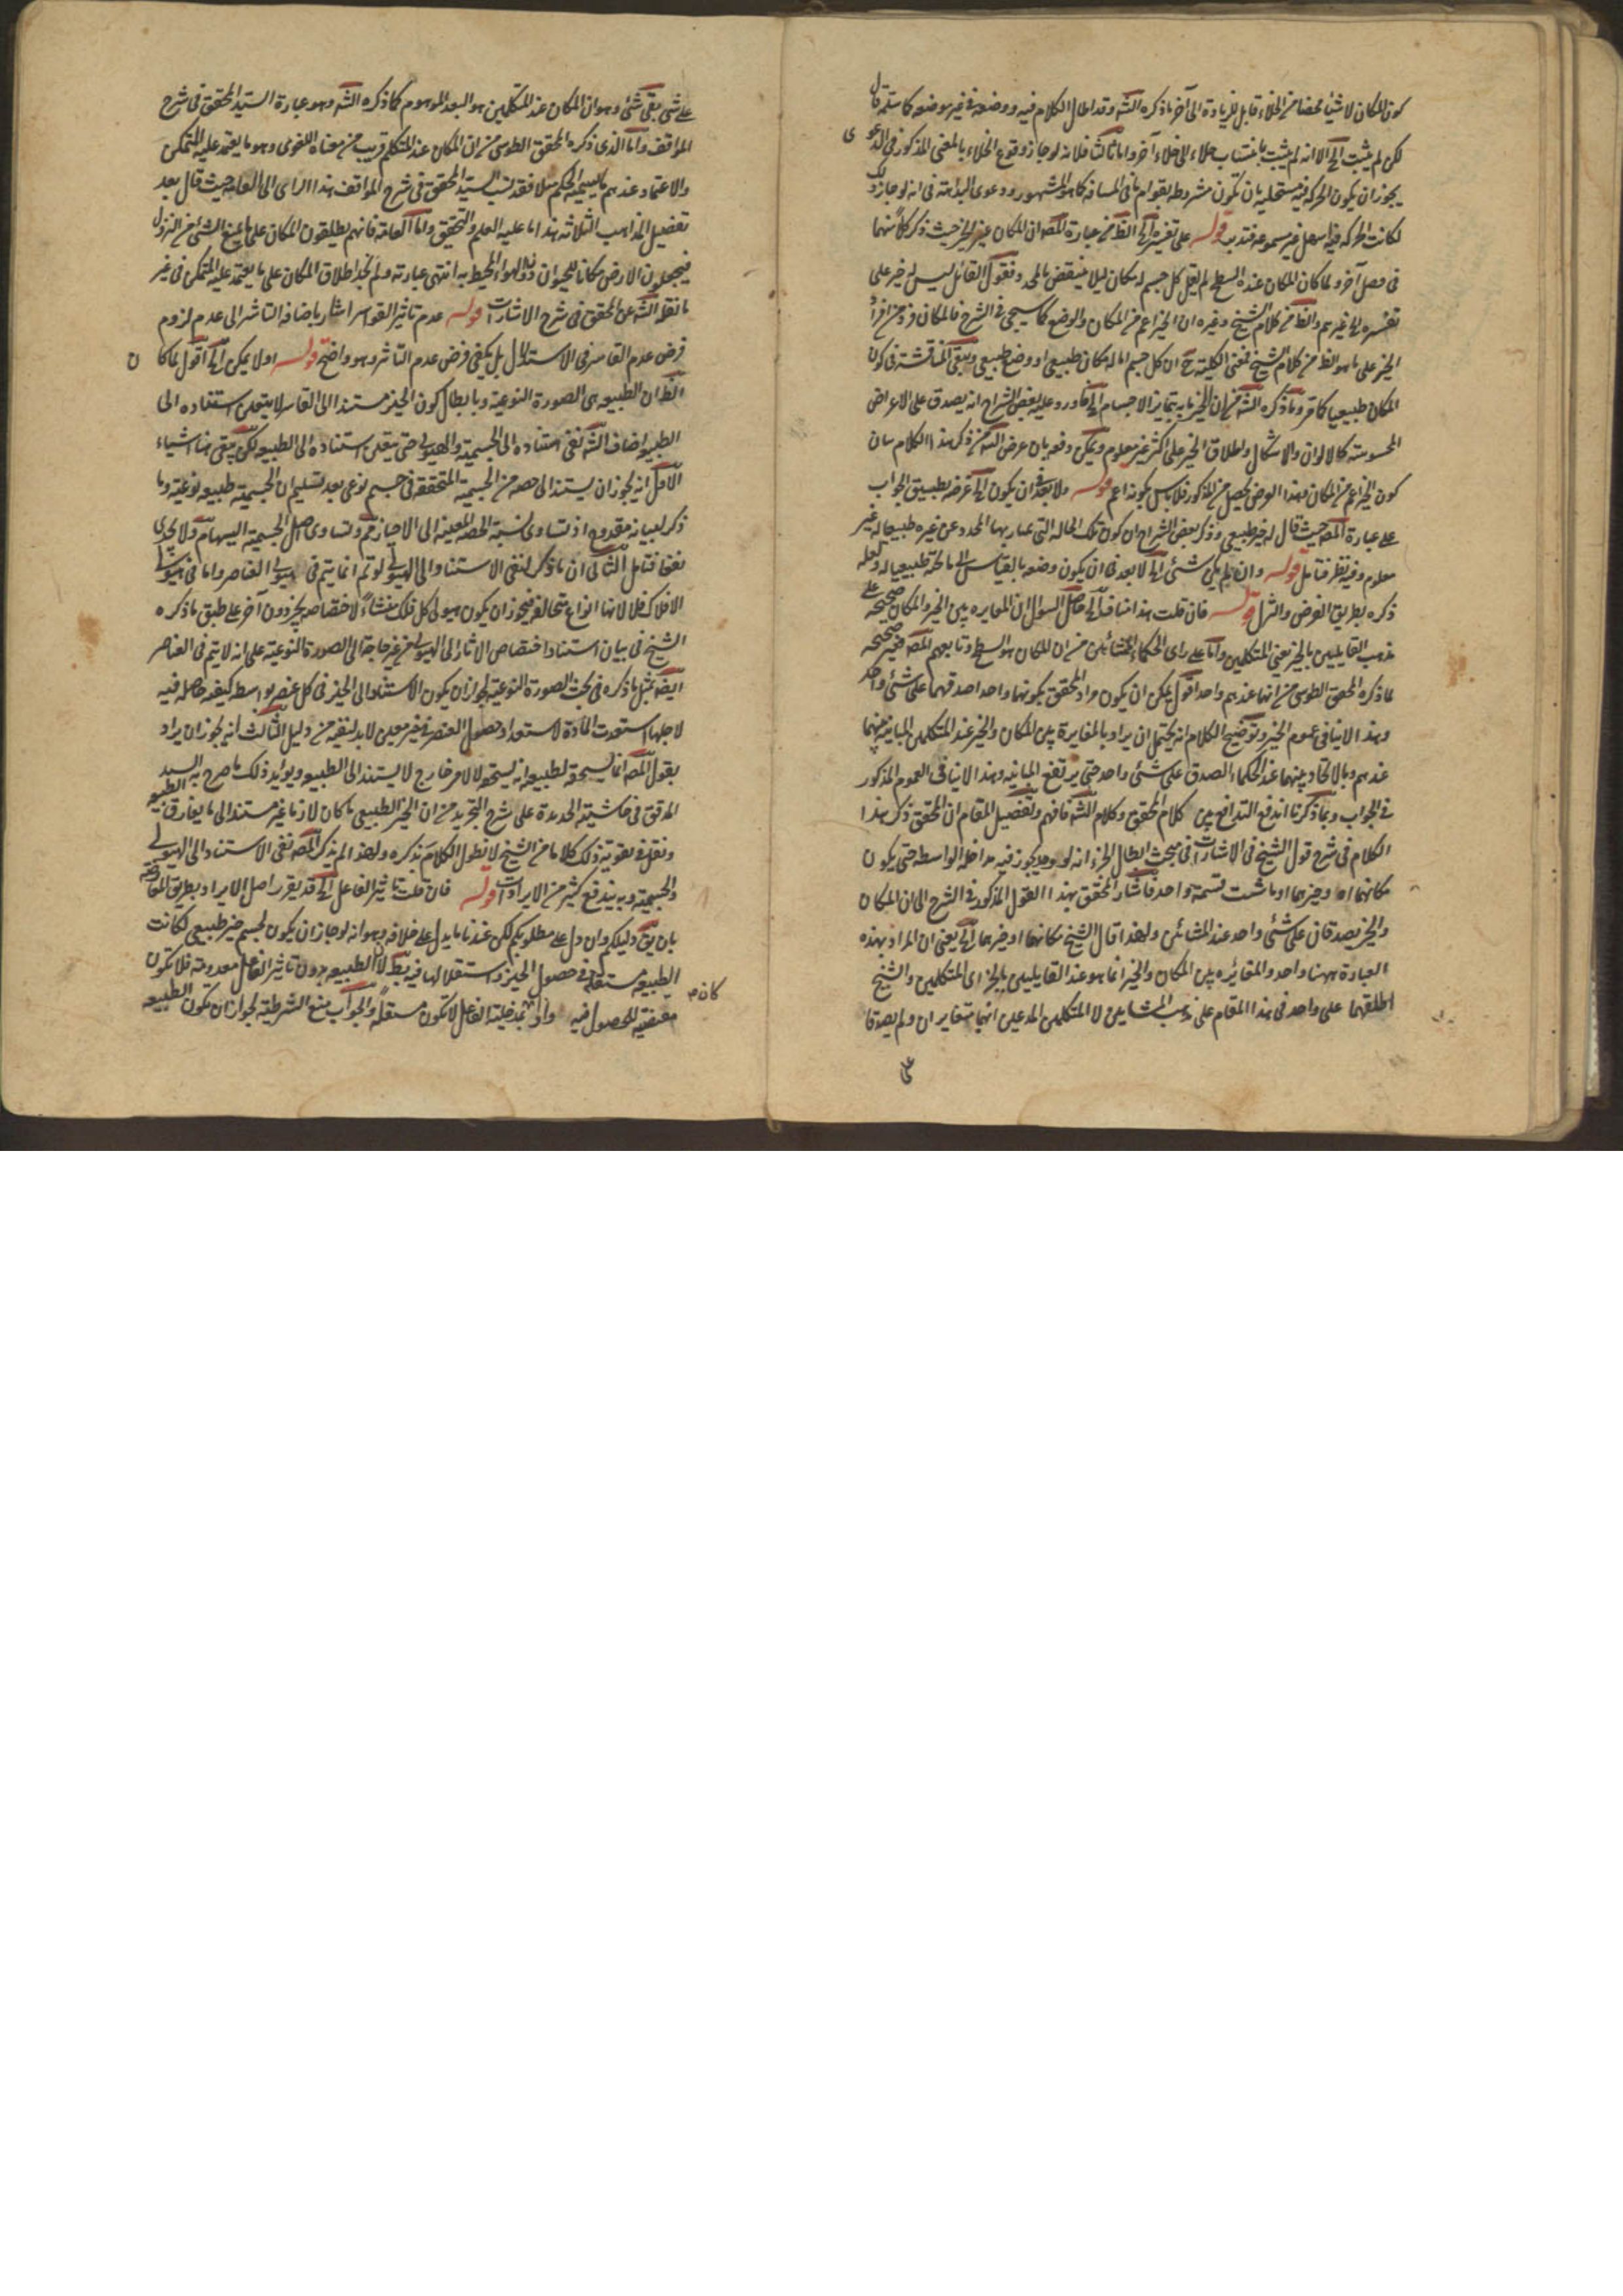 كون المكان لا شيئا محضا من الخلاء قابل للزيادة الى آخر ما ذكره الشه وقد اطال الكلام فيه ووضعه في غير موضعه كما ستعلمه قال
لكن لم يثبت الخ الا انه لم يثبت بانتساب خلاء الى خلاء آخر واما ثالثا فلانه لو جاز وقوع الخلاء بالمعنى المذكور في الدعوى
يجوز ان يكون الحركة فيه مستحيلة بان تكون مشروطة بقوام ما في المسافة كما هو المشهور ودعوى البداهة في انه لو جاز ذلك
لكانت الحركة فيها اسهل غير مسموعة فتدبر قوله على تفسيره الخ الظ من عبارة المصه ان المكان غير الحيز حيث ذكر كلا منهما
في فصل آخر ولما كان المكان عنده السطح لم يقل كل جسم له مكان ليلا ينتقض بالمحدد فقول القائل ليس له خبر على
تفسيره الى غيرهم والظ من كلام الشيخ وغيره ان الحيز اعم من المكان والوضع كما سيجئ في الشرح فالمكان فرد من افراد
الحيز على ما هو الظ من كلام الشيخ فمعنى الكلية ح ان كل جسم اما له مكان طبيعي او وضع طبيعي ويبقى المناقشة في كون
المكان طبيعيا كما مر وما ذكره الشه من ان الحيز ما به يتمايز الاجسام الخ فاورد عليه بعض الشراح انه يصدق على الاعراض
المحسوسة كالالوان والاشكال واطلاق الحيز على اكثر غير معلوم ويمكن دفعه بان غرض الشه من ذكر هذا الكلام بيان
كون الحيز اعم من المكان وهذا الغرض يحصل من المذكور فلا باس بكونه اعم قوله ولا بعد في ان يكون الخ غرضه تطبيق الجواب
على عبارة المصه حيث قال له حيز طبيعي وذكر بعض الشراح ان كون تلك الحالة التي يمتاز بها المحدد عن غيره طبيعيا له غير
معلوم وفيه نظر فتامل قوله وان لم يكن شئ الخ لا بعد في ان يكون وضعه بالقياس الى ما تحته طبيعيا له ولعله
ذكره بطريق الفرض والتنزل قوله فان قلت هذا ينافي الخ حاصل السؤال ان المغايرة بين الحيز والمكان صحيحة على
مذهب القايلين بالجزء يعني المتكلمين واما على راى الحكماء المشائين من ان المكان هو السطح وتابعهم المصه فغير صحيحة
لما ذكره المحقق الطوسي من انهما عندهم واحد اقول يمكن ان يكون مراد المحقق بكونهما واحدا صدقهما على شئ واحد
وهذا لا ينافي عموم الحيز وتوضيح الكلام انه يحتمل ان يراد بالمغايرة بين المكان والحيز عند المتكلمين المباينة بينهما
عندهم وبالاتحاد بينهما عند الحكماء الصدق على شئ واحد حتى يرتفع المباينة وهذا لا ينافي العموم المذكور
في الجواب وبما ذكرنا اندفع التدافع بين كلام المحقق وكلام الشه فافهم وتفصيل المقام ان المحقق ذكر هذا
الكلام في شرح قول الشيخ في الاشارات في مبحث ابطال الجزء انه لو وجد يجوز فيه مداخلة الواسطة حتى يكون
مكانهما او حيزهما او ما شئت تسمية واحد فاشار المحقق بهذا القول المذكور في الشرح الى ان المكان
والحيز يصدقان على شئ واحد عند المشائين ولهذا قال الشيخ مكانهما او حيزهما الخ يعنى ان المراد بهذه
العبارة ههنا واحد والمغايرة بين المكان والحيز انما هو عند القايلين بالجزء اى المتكلمين والشيخ
اطلقهما على واحد في هذا المقام على مذهب المشائين لا المتكلمين المدعين انهما متغايران ولم يصدقا
على شئ بقى شئ وهو ان المكان عند المتكلمين هو البعد الموهوم كما ذكره الشه وهو عبارة السيد المحقق في شرح
المواقف واما الذى ذكره المحقق الطوسي من ان المكان عند المتكلم قريب من معناه اللغوى وهو ما يعتمد عليه المتمكن
والاعتماد عندهم ما يسميه الحكيم ميلا فقد نسب السيد المحقق في شرح المواقف هذا الراى الى العامة حيث قال بعد
تفصيل المذاهب الثلاثة هذا ما عليه العلم والتحقيق واما العامة فانهم يطلقون المكان على ما يمنع الشئ من النزول
فيجعلون الارض مكانا للحيوان دون الهواء المحيط به انتهى عبارته ولم نجد اطلاق المكان على ما يعتمد عليه المتمكن في غير
ما نقله الشه عن المحقق في شرح الاشارات قوله عدم تاثير القواسر اشار باضافة التاثير الى عدم لزوم
فرض عدم القاسر في الاستدلال بل يكفي فرض عدم التاثير وهو واضح قوله اولا يمكن الخ اقول لما كان
الظ ان الطبيعة هى الصورة النوعية وبابطال كون الحيز مستندا الى القاسر لا يتعين استناده الى
الطبيعة اضاف الشه نفى استناده الى الجسمية والهيولى حتى يتعين استناده الى الطبيعة لكن يبقى ههنا اشياء
الاول انه يجوز ان يستند الى حصة من الجسمية المتحققة في جسم نوعي بعد تسليم ان الجسمية طبيعة نوعية وما
ذكر لبيانه مقدوح اذ تساوى نسبة الحصة المعينة الى الاحياز مم وتساوى اصل الجسمية اليها مم ولا يجدى
نفعا فتامل الثاني ان ما ذكر لنفى الاستناد الى الهيولى لو تم انما يتم في هيولى العناصر واما في هيولى
الافلاك فلا لانها انواع متخالفة فيجوز ان يكون هيولى كل فلك منشاء لاختصاصه بحيز دون آخر على طبق ما ذكره
الشيخ في بيان استناد اختصاص الاثار الى الهيولى من غير حاجة الى الصورة النوعية على انه لا يتم في العناصر
ايضه بمثل ما ذكره في بحث الصورة النوعية لجواز ان يكون الاستناد الى الحيز في كل عنصر بواسطة كيفية حاصلة فيه
لاجلها استعدت المادة لاستعداد حصول العنصر في حيز معين لا بد لنفيه من دليل الثالث انه يجوز ان يراد
بقول المصه انما يستحقه لطبيعه انه يستحقه لا لامر خارج لا يستند الى الطبيعة ويؤيد ذلك ما صرح به السيد
المدقق في حاشيته الجديدة على شرح التجريد من ان الحيز الطبيعي ما كان لازما غير مستند الى ما يفارق الطبيعة
ونقل في تقوية ذلك كلاما من الشيخ لا نطول الكلام بذكره ولهذا لم يذكر المصه نفى الاستناد الى الهيولى
والجسمية وبه يندفع كثير من الايرادات قوله فان قلت تاثير الفاعل الخ قد يقرر اصل الايراد بطريق المعارضة
بان يق دليلكم وان دل على مطلوبكم لكن عندنا ما يدل على خلافه وهو انه لو جاز ان يكون لجسم حيز طبيعي لكانت
الطبيعة مستقلة في حصول الحيز واستقلالها فيه بط لان الطبيعة بدون تاثير الفاعل معدومة فلا تكون
مقتضية للحصول فيه واذا كان بمدخلية الفاعل لا تكون مستقلة والجواب منع الشرطية لجواز ان تكون الطبيعة